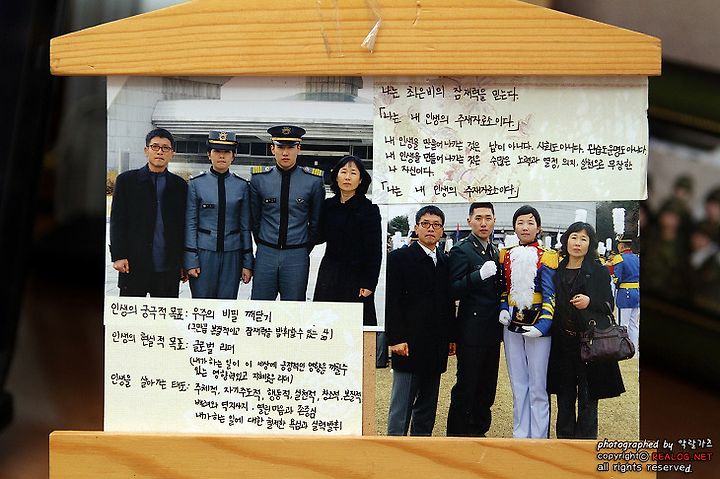 나는 최은비의 잠재력을 믿는다.
「나는 내 인생의 주재자로소이다.」
내 인생을 만들어나가는 것은 남이 아니다. 사회도 아니다.
내 인생을 만들어 나가는 것은 수많은 노력과 열정, 의지, 실천으로 무장한
나 자신이다.
「나는 내 인생의 주재자로소이다.」
인생의 궁극적 목표: 우주의 비밀 깨닫기
인생의 현실적 목표: 글로벌 리더
(내가 하는 일이 이 세상에 긍정적인 영향을 끼칠수
있는 영향력있고 지혜로운 리더)
인생을 살아가는 태도: 주체적, 자기주도적, 행동적, 실천적, 창조적, 본질적
배려와 역지사지, 열린마음과 존중심
내가 하는 일에 대한 철저한 욕심과 실력발휘
photographed by 악랄가츠
copyrightⓒ REALOG.NET
all rights reserved.